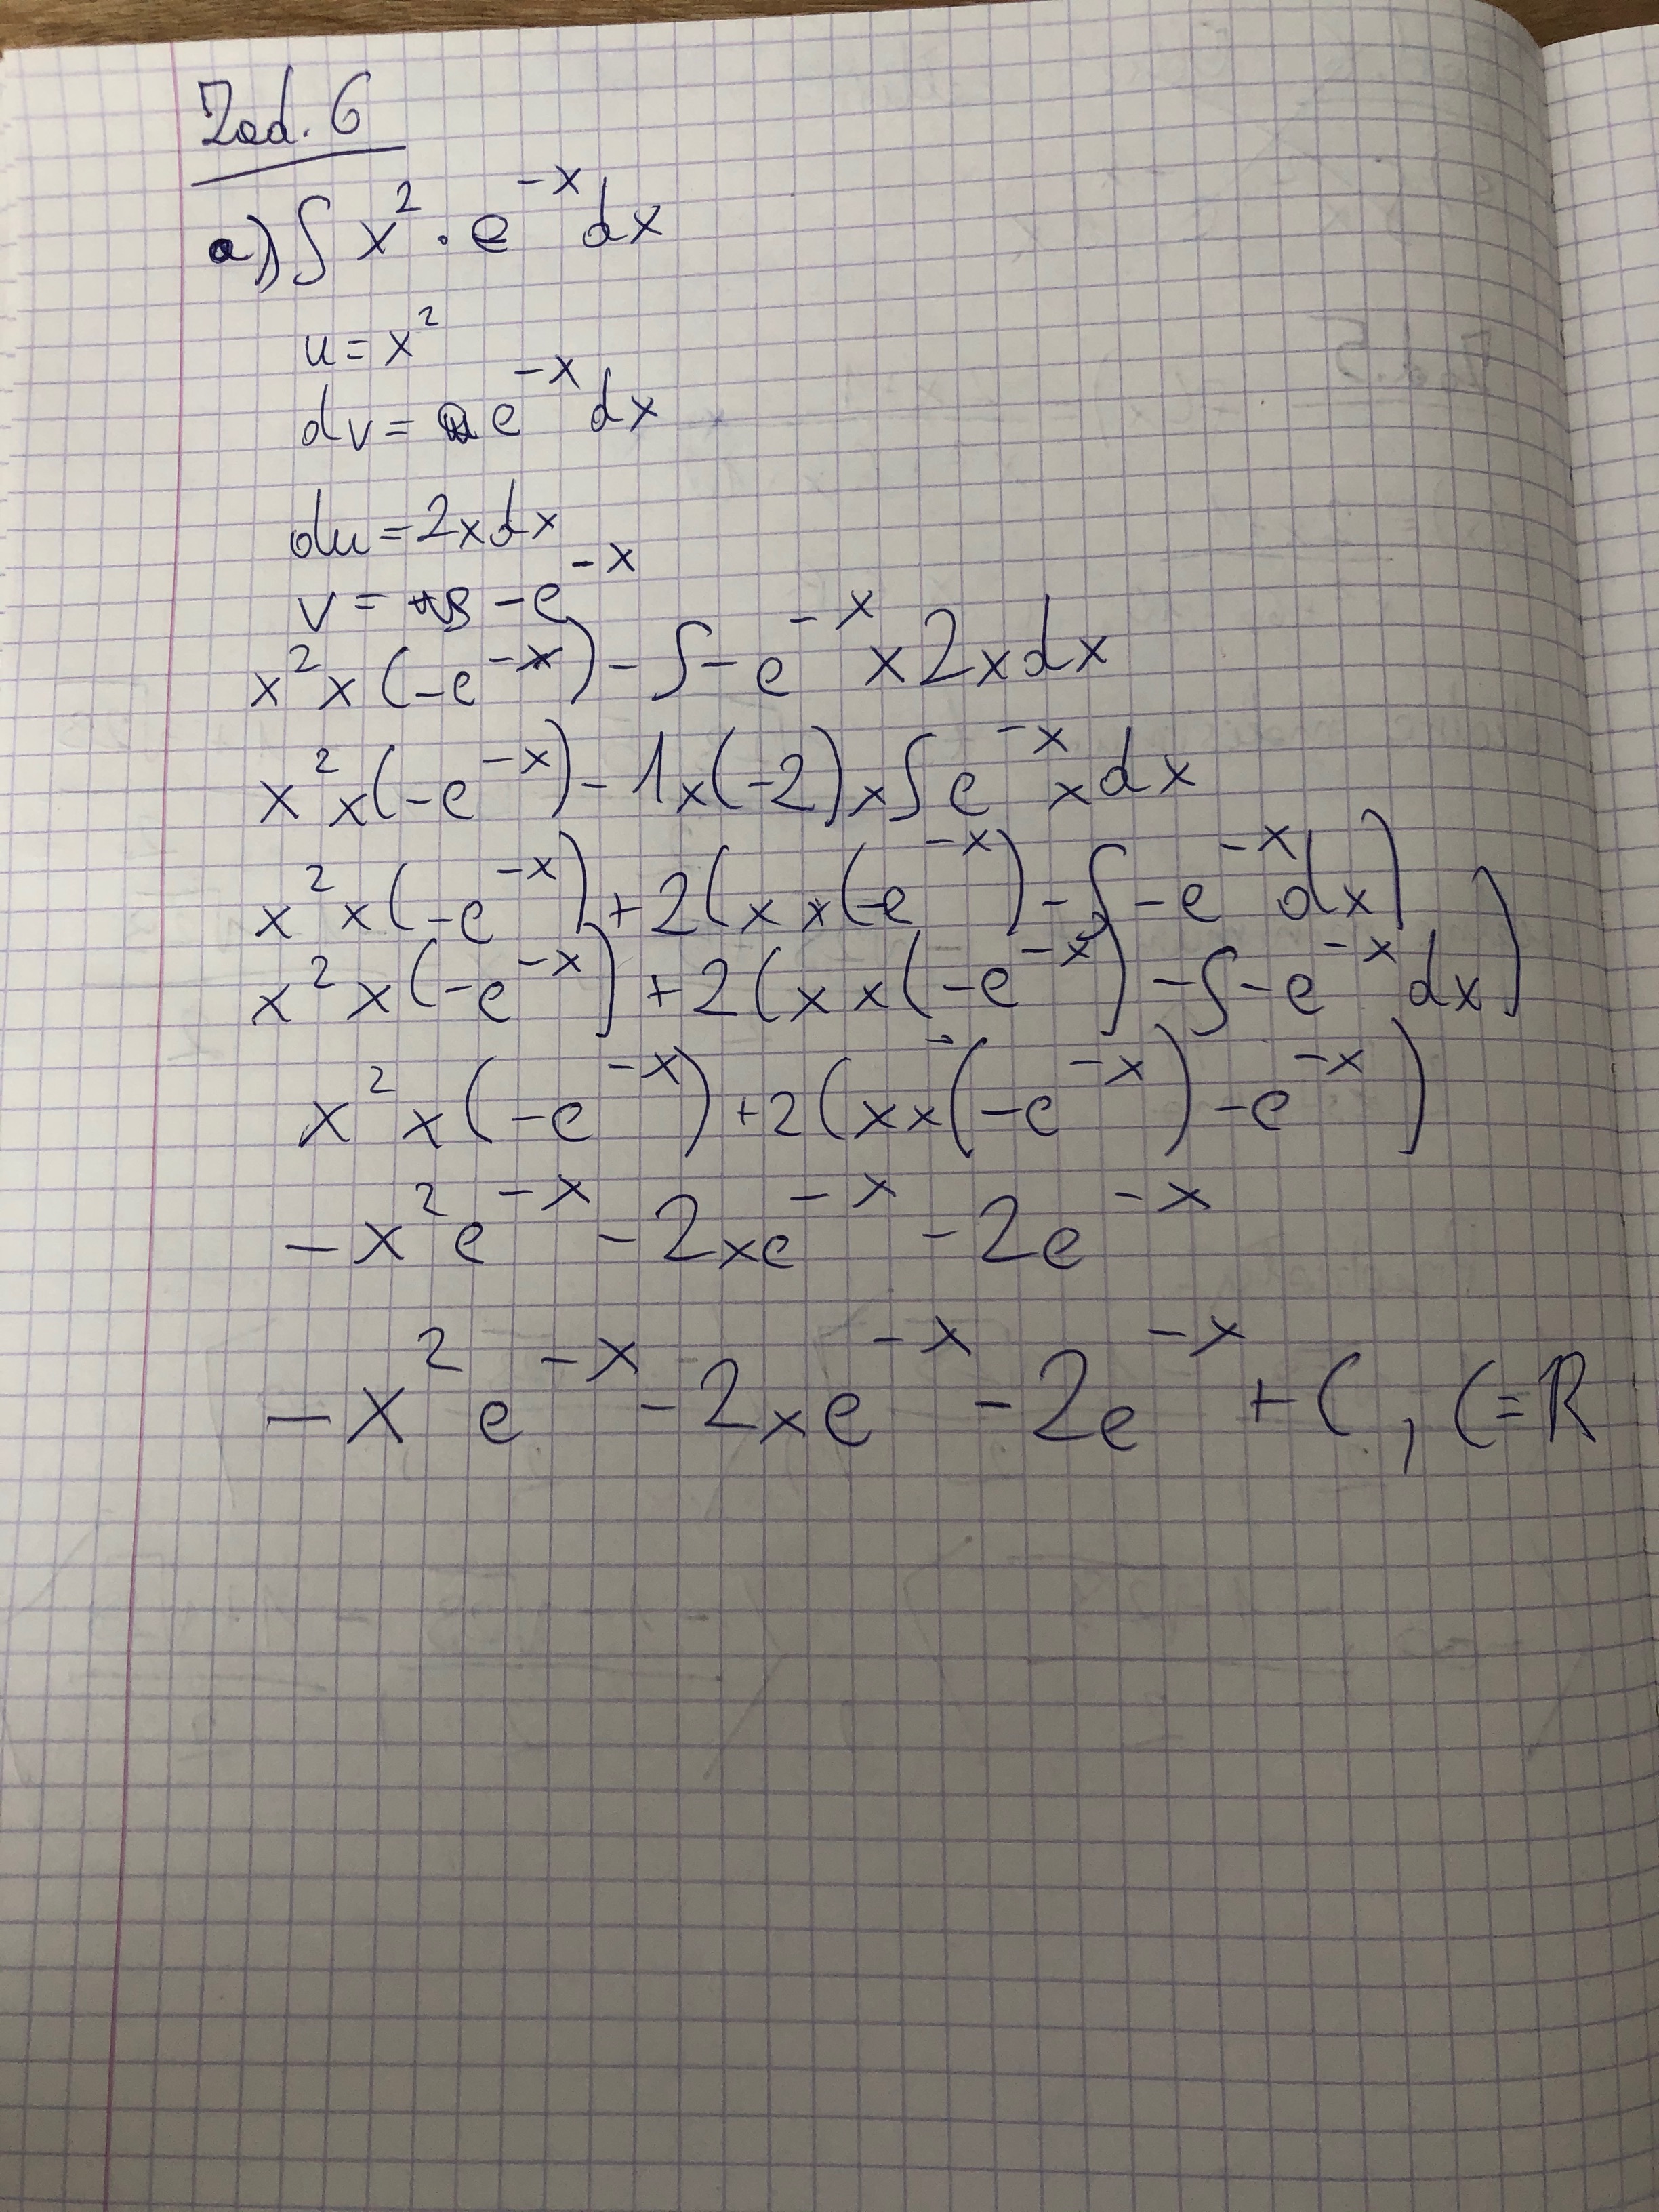 Zad. 6
a) ∫ x² · e^(-x) dx
u = x²
dv = e^(-x) dx
du = 2x dx
v = -e^(-x)
x² x (-e^(-x)) - ∫ -e^(-x) x 2x dx
x² x (-e^(-x)) - 1 x (-2) x ∫ e^(-x) x dx
x² x (-e^(-x)) + 2(x x (-e^(-x)) - ∫ -e^(-x) dx)
x² x (-e^(-x)) + 2(x x (-e^(-x)) - ∫ -e^(-x) dx)
x² x (-e^(-x)) + 2(x x (-e^(-x)) - e^(-x))
-x² e^(-x) - 2xe^(-x) - 2e^(-x)
-x² e^(-x) - 2xe^(-x) - 2e^(-x) + C, C = R